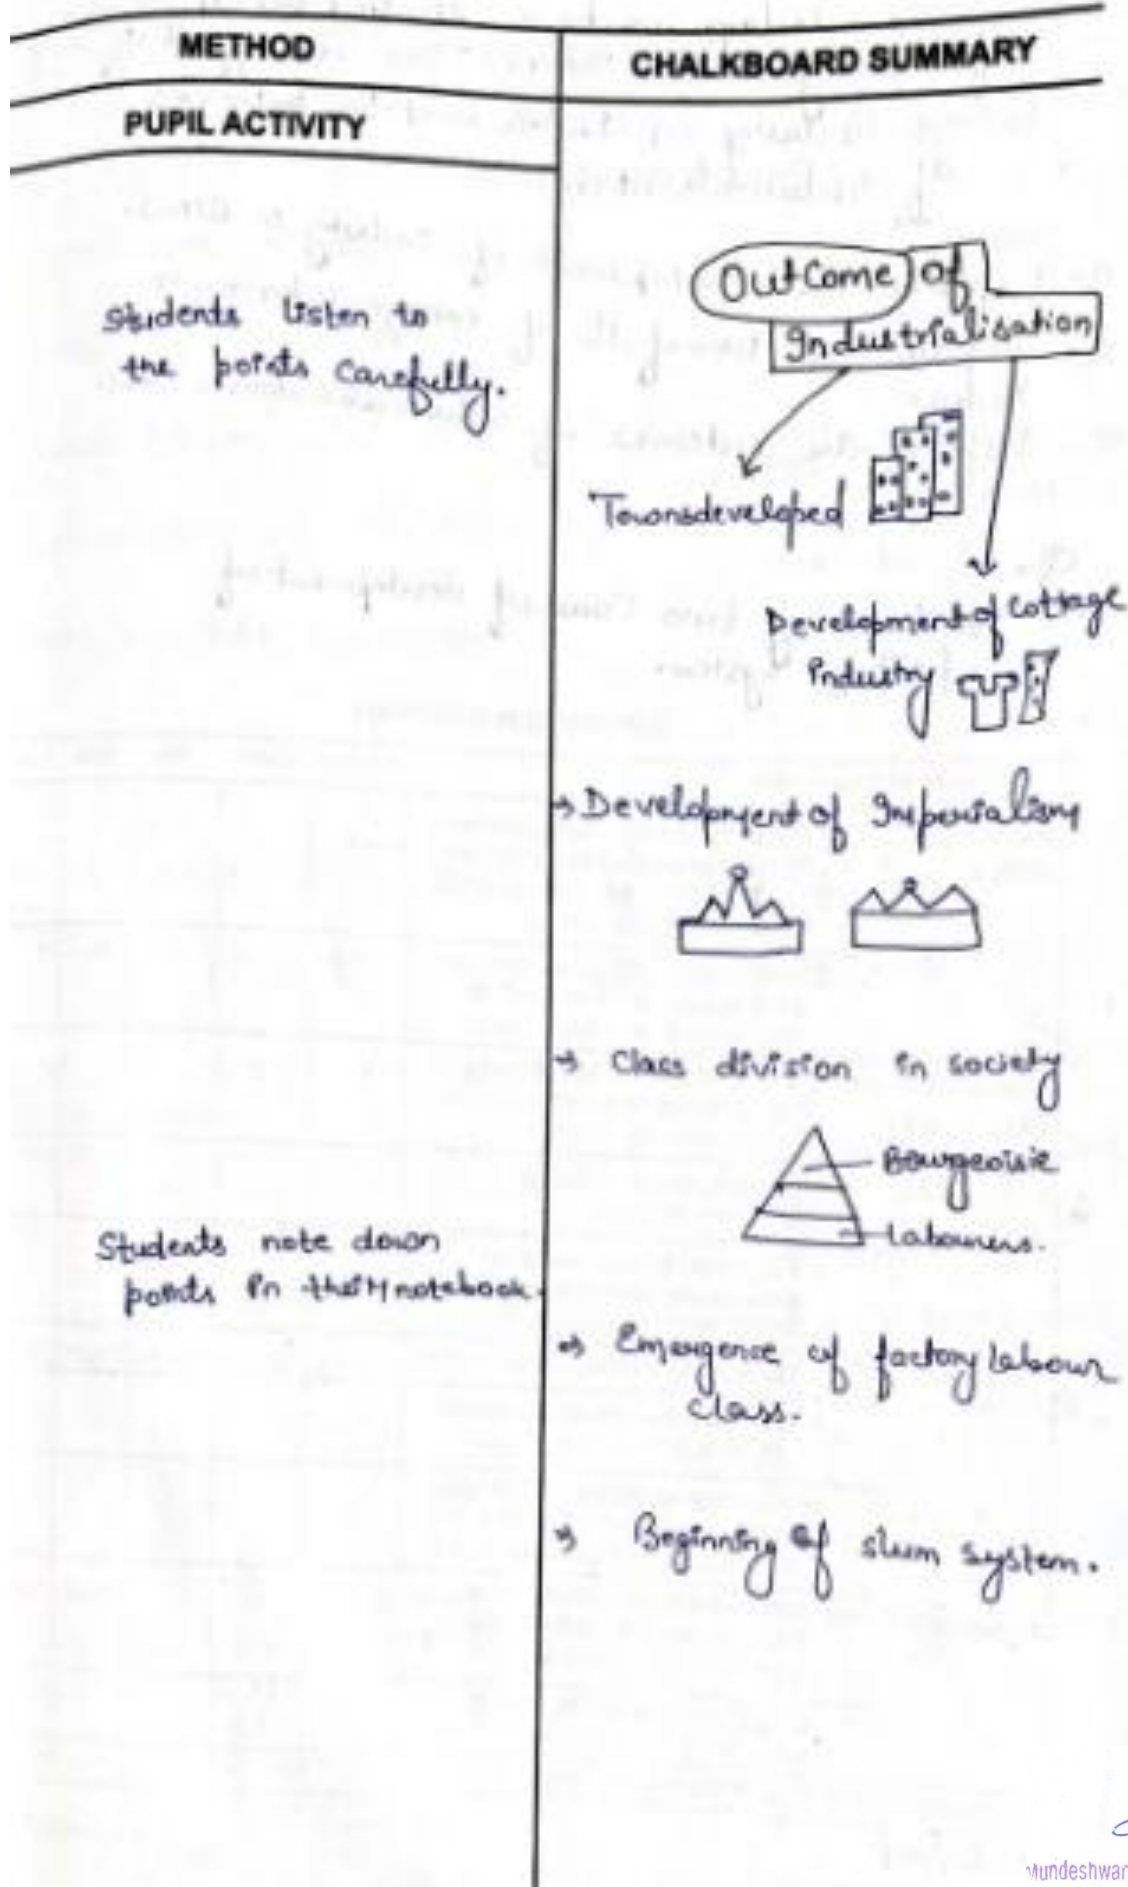 METHOD
PUPIL ACTIVITY
Students listen to
the points carefully.
Students note down
points in their notebook.
CHALKBOARD SUMMARY
Outcome of
Industrialisation
Towns developed
Development of cottage
industry
→ Development of Imperialism
→ Class division in society
Bourgeoisie
Labourers.
→ Emergence of factory labour
class.
→ Beginning of slum system.
Mundeshwar